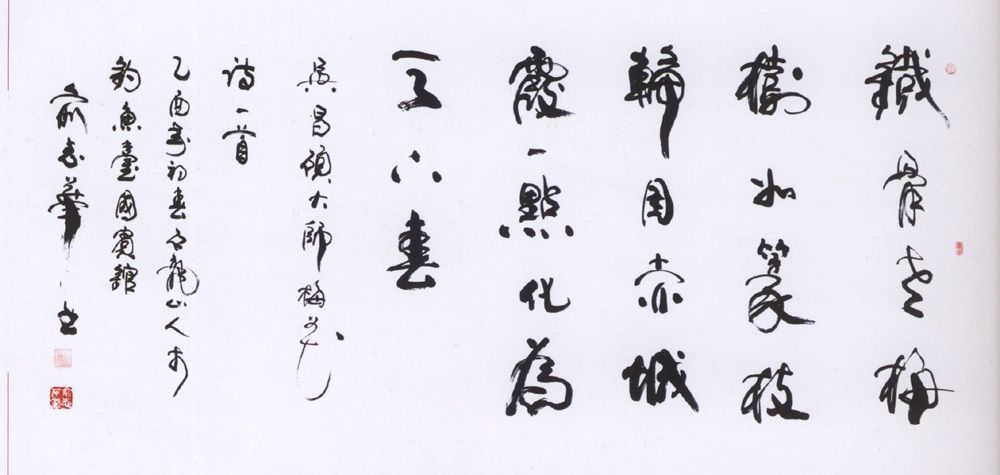 鐵骨老梅
樹如篆枝
歸用赤城
霞一點化為
天下春
吳昌碩大師梅花
詩一首
乙酉初春石龍山人於
釣魚臺國賓館
俞志華書